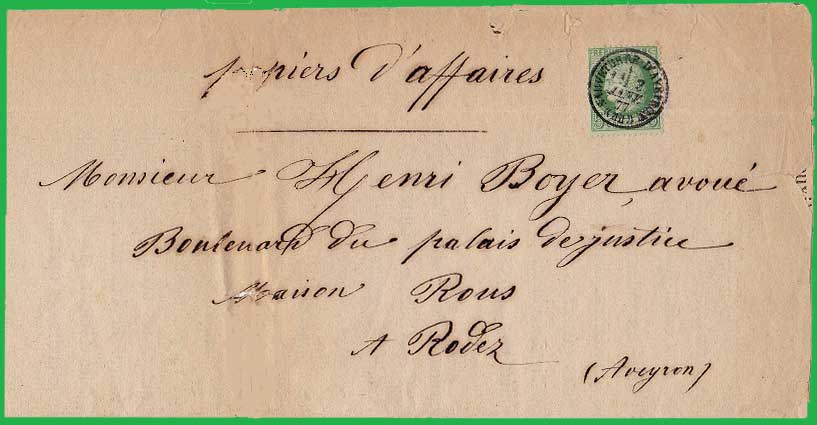 papiers d'affaires
Monsieur Henri Boyer, avoué
Boulevard du palais de justice
Maison Rous
A Rodez
(Aveyron)